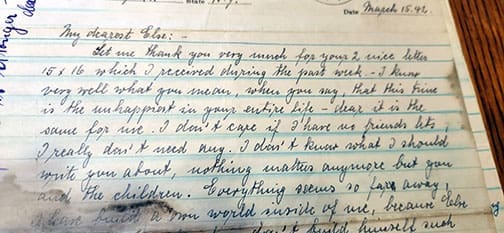 State N.Y.
Date March 15.42.
My dearest Else: -
Let me thank you very much for your 2 nice letter
15 & 16 which I received during the past week. - I know
very well what you mean, when you say, that this time
is the unhappiest in your entire life - dear it is the
same for me. I don't care if I have no friends lets
I really don't need any. I don't know what I should
write you about, nothing matters anymore but you
and the children. Everything seems so far away,
I have build a own world inside of me, because Else
don't build himself such